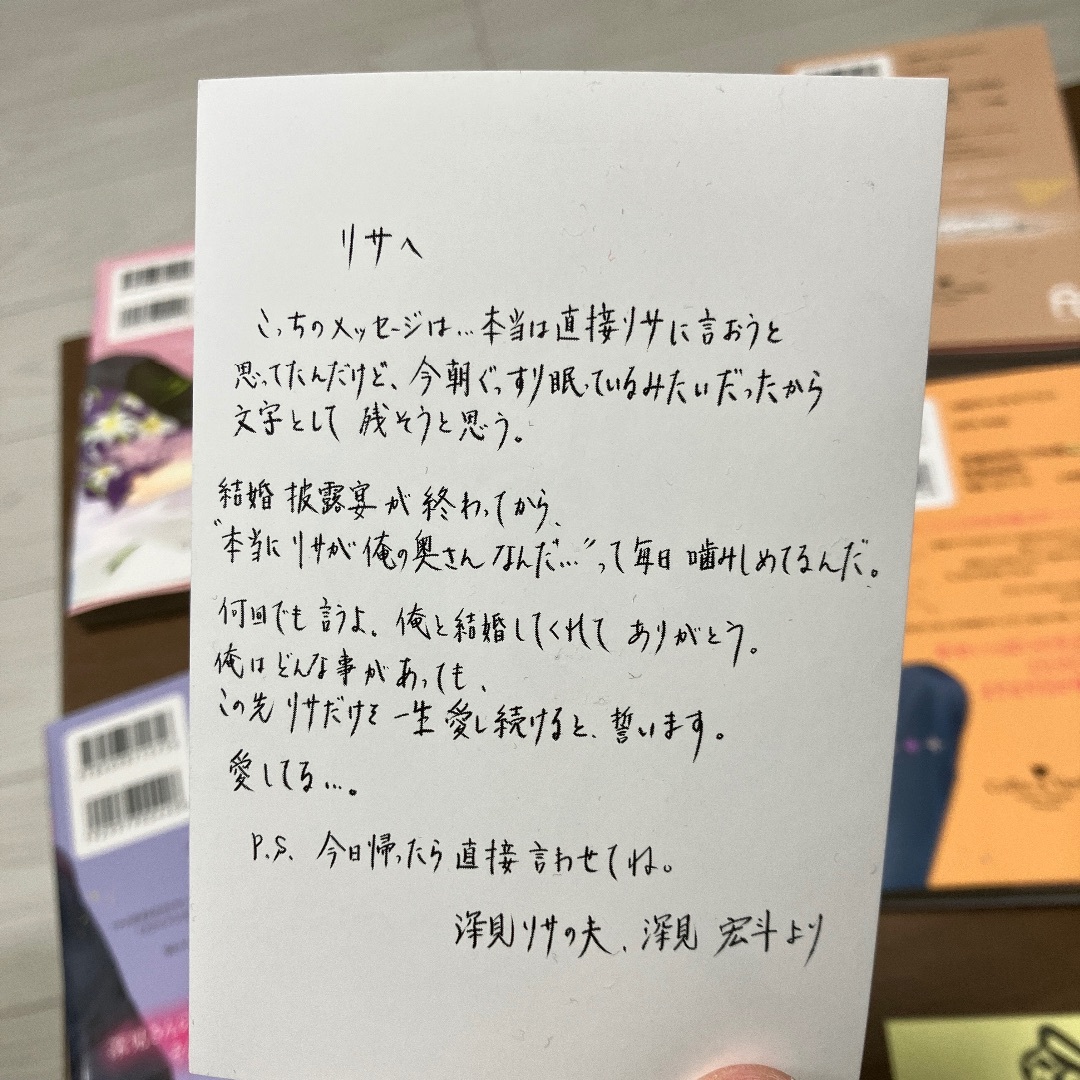 リサへ
こっちのメッセージは…本当は直接リサに言おうと
思ってたんだけど、今朝ぐっすり眠っているみたいだったから
文字として残そうと思う。
結婚披露宴が終わってから、
"本当にリサが俺の奥さんなんだ…"って毎日噛みしめてるんだ。
何回でも言うよ。俺と結婚してくれてありがとう。
俺はどんな事があっても、
この先リサだけを一生愛し続けると、誓います。
愛してる…。
P.S. 今日帰ったら直接言わせてね。
深見リサの夫、深見 宏斗より